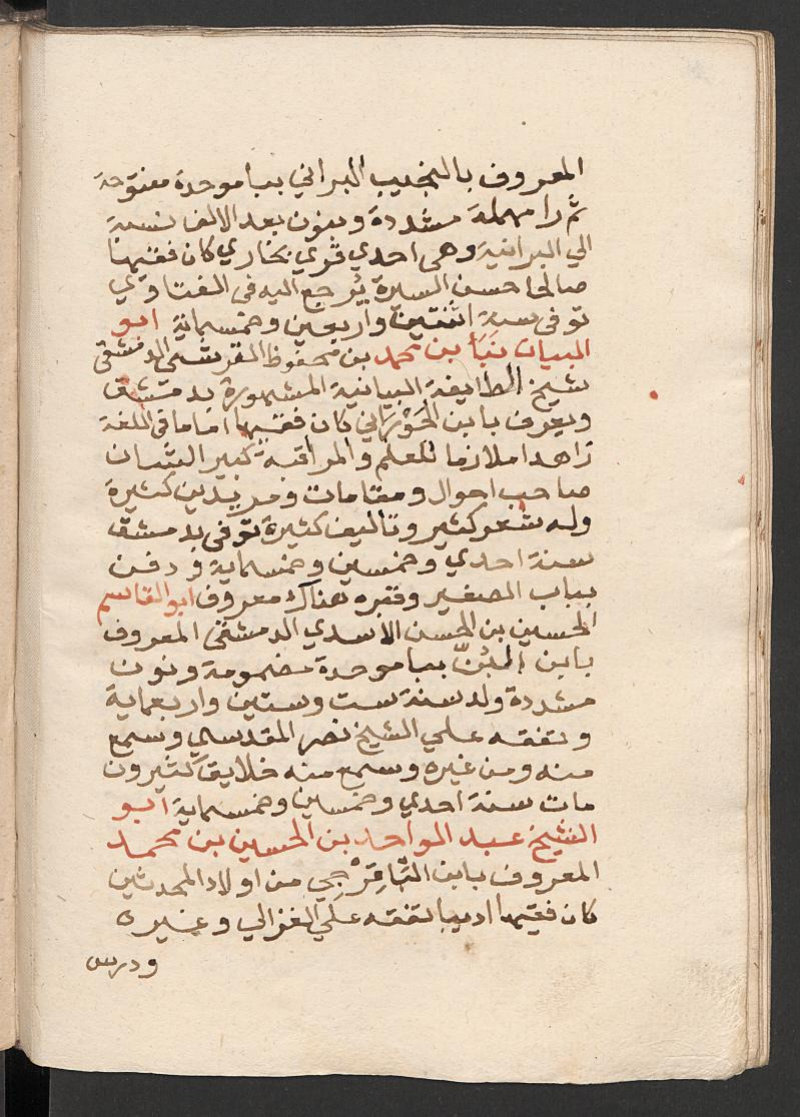 المعروف بالنجيب البراني ببا موحدة مفتوحة
ثم را مهملة مشددة وبنون بعد الالف نسبة
الي البرانية وهي احدي قري بخاري كان فقيها
صالحا حسن السيرة يُرجع اليه في الفتاوي
توفي سنة اثنتين واربعين وخمسماية ابو
البيان نَبَأ بن محمد بن محفوظ القرشي الدمشقي
شيخ الطايفة البيانية المشهورة بدمشق
ويعرف بابن الحَوْراني كان فقيها اماما في اللغة
زاهدا ملازما للعلم والمراقبة كبير الشان
صاحب احوال ومقامات ومريدين كثيرة
وله شعر كثير وتاليف كثيرة توفي بدمشق
سنة احدي وخمسين وخمسماية ودفن
بباب الصغير وقبره هناك معروف ابو القاسم
الحسين بن الحسن الاسدي الدمشقي المعروف
بابن البُنّ ببا موحدة مضمومة ونون
مشددة ولد سنة ست وستين واربعماية
وتفقه علي الشيخ نصر المقدسي وسمع
منه ومن غيره وسمع منه خلايق كثيرون
مات سنة احدي وخمسين وخمسماية ابو
الشيخ عبد الواحد بن الحسين بن محمد
المعروف بابن البَّاقَرْحِي من اولاد المحدثين
كان فقيها اديبا تفقه علي الغزالي وغيره
ودرس